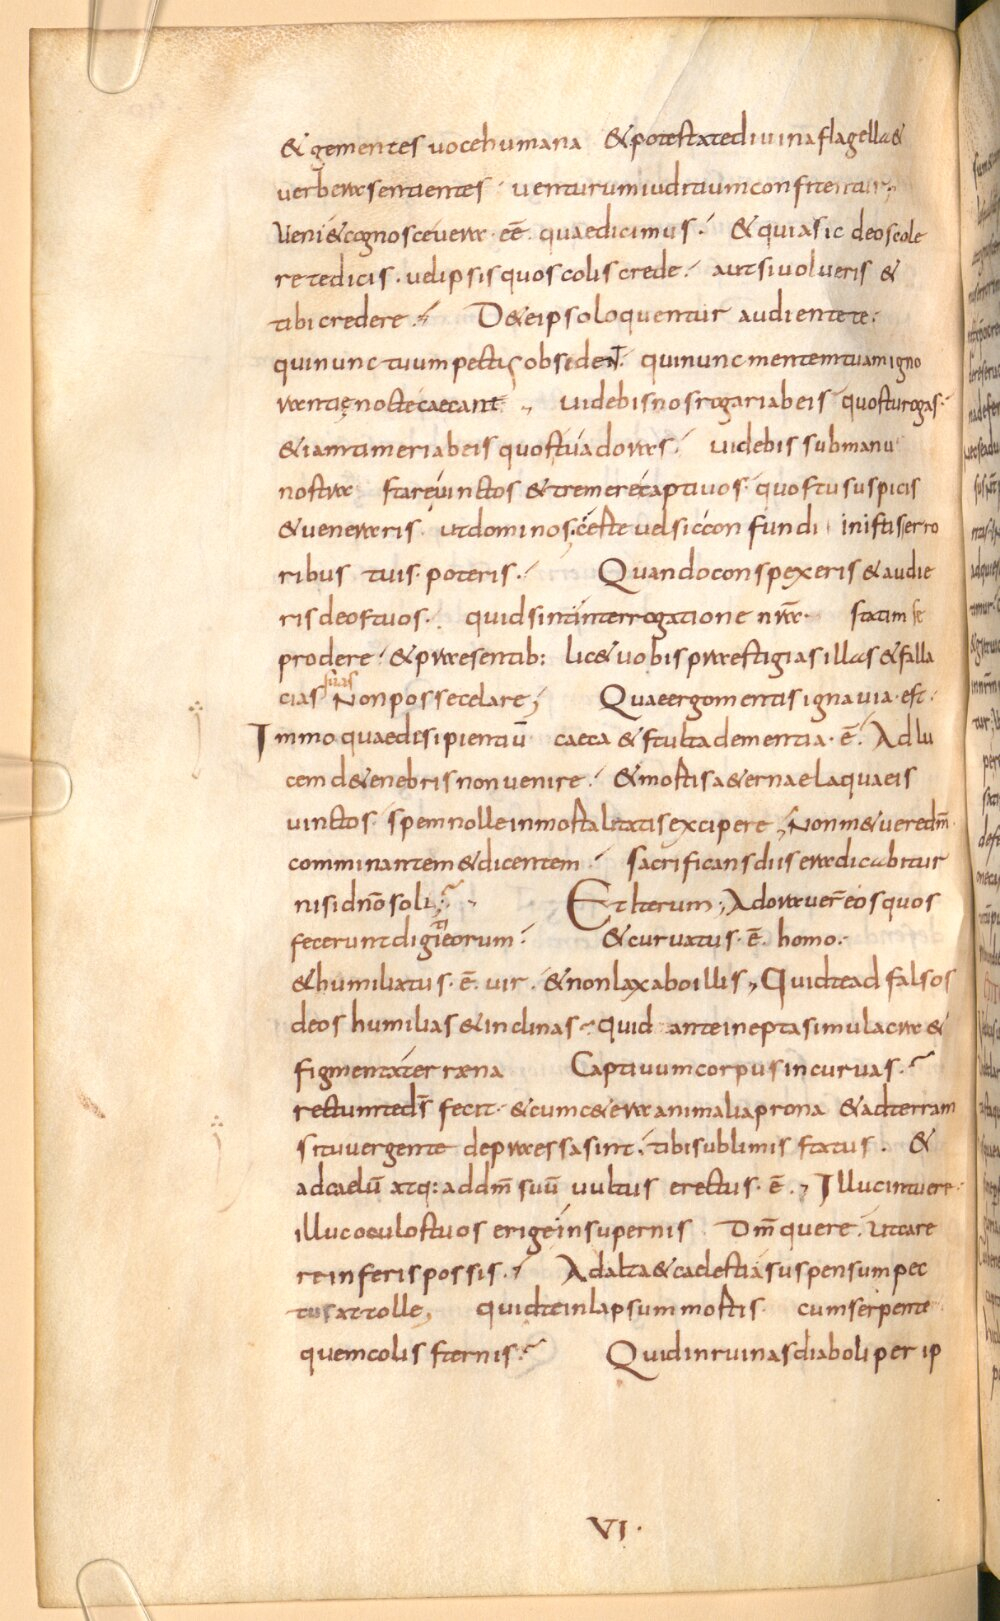 & gementes uoce humana & potestate diuina flagella &
uerbera sentientes · uenturum iuditium confitentur;
Ueni & cognosce uera · eē · quae dicimus · & quia sic deos cole
re te dicis · uel ipsis quos colis crede · aut si uolueris &
tibi credere · D& eipso loquentur audiente te ·
qui nunc tuum pectus obsedeNT · qui nunc mentem tuam igno
rantię nocte caecant ; uidebis nos rogari ab eis quos tu rogas ·
& iam timeri ab eis quos tu adoras · uidebis sub manu
nostra stare uinctos & tremere captiuos · quos tu suspicis
& ueneraris · ut dominos; certe uel sic confundi in istis erro
ribus tuis · poteris · Quando conspexeris & audie
ris deos tuos · quid sint interrogatione nrā · statim se
prodere · & praesentib: lic& uobis praestigias illas & falla
cias suas Non posse celare; Quae ergo mentis ignauia · est ·
Immo quae disipientiū caeca & stulta dementia · ē · Ad lu
cem de tenebris non uenire · & mortis aeternae laquaeis
uinctos · spem nolle inmortalitatis excipere; Non m&uere dm̄
comminantem & dicentem · sacrificans diis eradicabitur
nisi dnō soli; Et iterum; Adorauer̄ eos quos
fecerunt digiti eorum · & curuatus · ē · homo ·
& humiliatus · ē · uir · & non laxabo illis; Quid te ad falsos
deos humilias & inclinas · quid ante inepta simulacra &
figmenta terraena Captiuum corpus incuruas ·
rectum te ds̄ fecit · & cum cetera animalia prona & ad terram
situ uergente depraessa sint · tibi sublimis status · &
ad caelū atq: ad dm̄ suū uultus erectus · ē · ; Illuc intuere ·
illuc oculos tuos erige in supernis Dm̄ quere · ut care
re inferis possis · Ad alta & caelestia suspensum pec
tus attolle, quid te in lapsum mortis cum serpente
quem colis sternis · Quid in ruinas diaboli per ip
VI ·